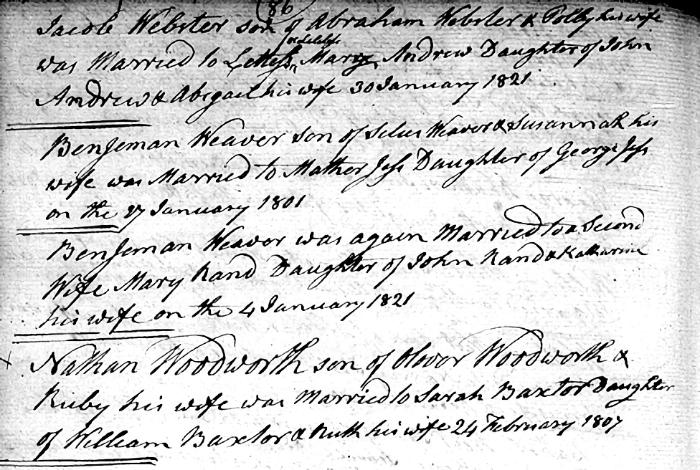 (86
Jacob Webster son of Abraham Webster & Polly his wife
was Married to Mary Andrew Daughter of John
Andrew & Abigael his wife 30 January 1821
BenJeman Weaver son of Silus Weaver & Susannah his
wife was Married to Mather Jess Daughter of George Jess
on the 27 January 1801
BenJeman Weaver was again Married to a Second
Wife Mary Rand Daughter of John Rand & Katharine
his wife on the 4 January 1821
Nathan Woodworth son of Olivor Woodworth &
Ruby his wife was Married to Sarah Baxtor Daughter
of William Baxtor & Ruth his wife 24 February 1807